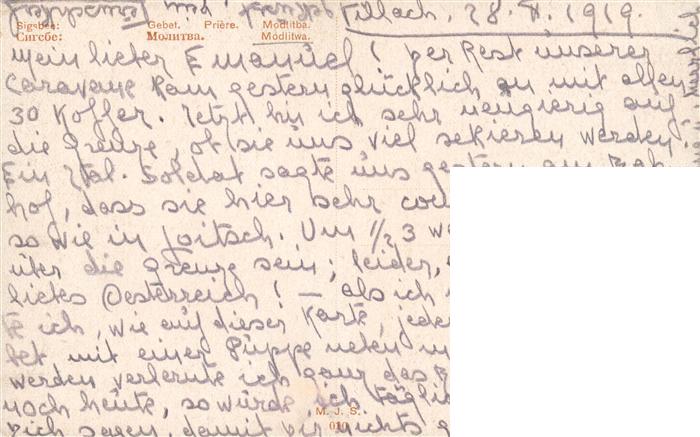 Villach, 28. V. 1919.
Sigsbes: Gebet. Prière. Modlitba.
Сигсбе: Молитва. Modlitwa.
Mein lieber Emanuel! Der Rest unserer
Caravane kam gestern glücklich an mit allen
30 Koffer. Jetzt bin ich sehr neugierig auf
die Grenze, ob sie uns viel sekieren werden.
Ein Ital. Soldat sagte uns gestern am Bah
hof, dass sie hier sehr
so wie in Loitsch. Um 1/2 3
über die Grenze sein; leider,
liebes Oesterreich! – als ich
te ich, wie auf dieser Karte, jede
tet mit einer Puppe neben
werden verlernte ich ganz das
noch heute, so würde ich täglic
dich sagen, damit dir nichts
M. J. S.
010